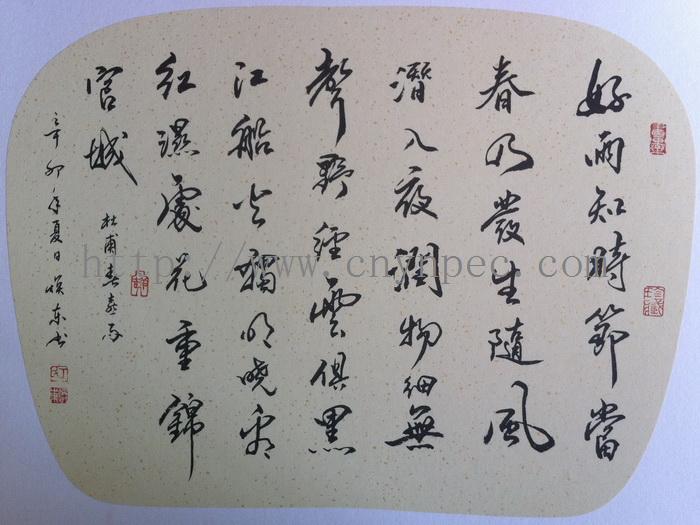 好雨知時節當
春乃發生隨風
潛入夜潤物細無
聲野經雲俱黑
江船火獨明曉看
紅濕處花重錦
官城
杜甫春喜雨
辛卯年夏日東书
http://www.cnynpec.com